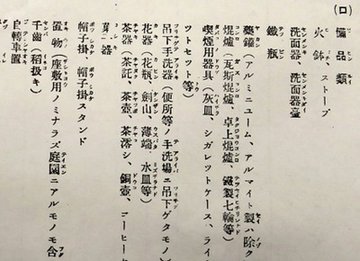 (ロ) 備品類
火鉢、ストーブ
洗面器、洗面器臺
鐵瓶
藥鑵(アルミニューム、アルマイト製ハ除ク
焜爐(瓦斯焜爐、卓上焜爐、鐵製七輪等)
喫煙用器具(灰皿、シガレットケース、ライ
ツトセット等)
吊下手洗器(便所等ノ手洗場ニ吊下ゲタモノ)
花器(花瓶、劍山、薄端、水皿等)
茶器(茶託、茶壺、茶漉シ、銅壺、コーヒー
釜器
帽子掛、帽子掛スタンド
置物(座敷用ノミナラズ庭園ニアルモノモ含
千齒(稻扱キ)
自轉車置